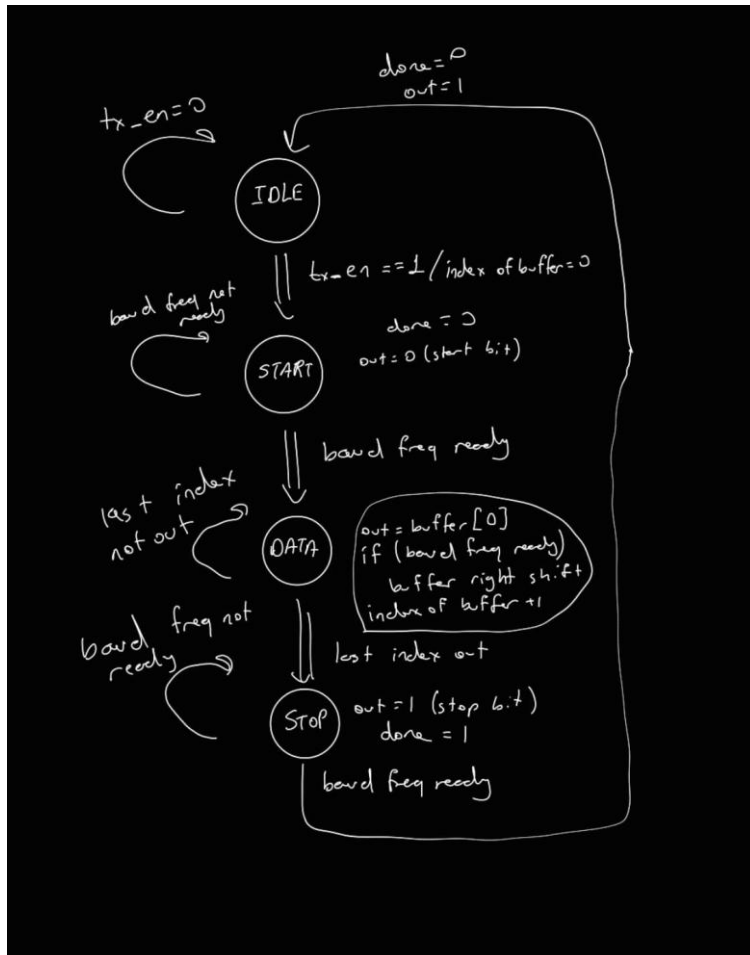 done=0
out=1
tx_en=0
IDLE
tx_en==1/index of buffer=0
baud freq not
ready
done=0
out=0 (start bit)
START
baud freq ready
last index
not out
DATA
out=buffer[0]
if (baud freq ready)
buffer right shift
index of buffer +1
baud freq not
ready
last index out
STOP
out=1 (stop bit)
done=1
baud freq ready